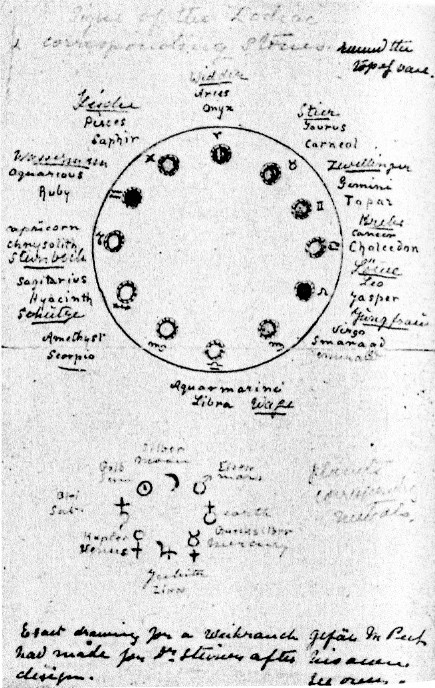 Signs of the Zodiac
corresponding stones.
round the
top of vase.
Widder
Aries
Onyx
Fische
Pisces
Saphir
Stier
Taurus
Carneol
Wassermann
Aquareous
Ruby
Zwillinge
Gemini
Topaz
Krebs
Cancer
Chalcedon
Capricorn
chrysolith
Steinbock
Löwe
Leo
Jasper
Sagitarius
Hyacinth
Schütze
Jungfrau
Virgo
Smaragd
Amethyst
Scorpio
Aquamarine
Libra Wage
Silber
Moon
Gold
Sun
Eisen
Mars
Blei
Sat.
earth
Kupfer
Venus
Quecksilber
Mercury
Planets
corresponding
metals.
Exact drawing for a Weihrauch Gefäs
had made for Dr Steiner after his own
design.